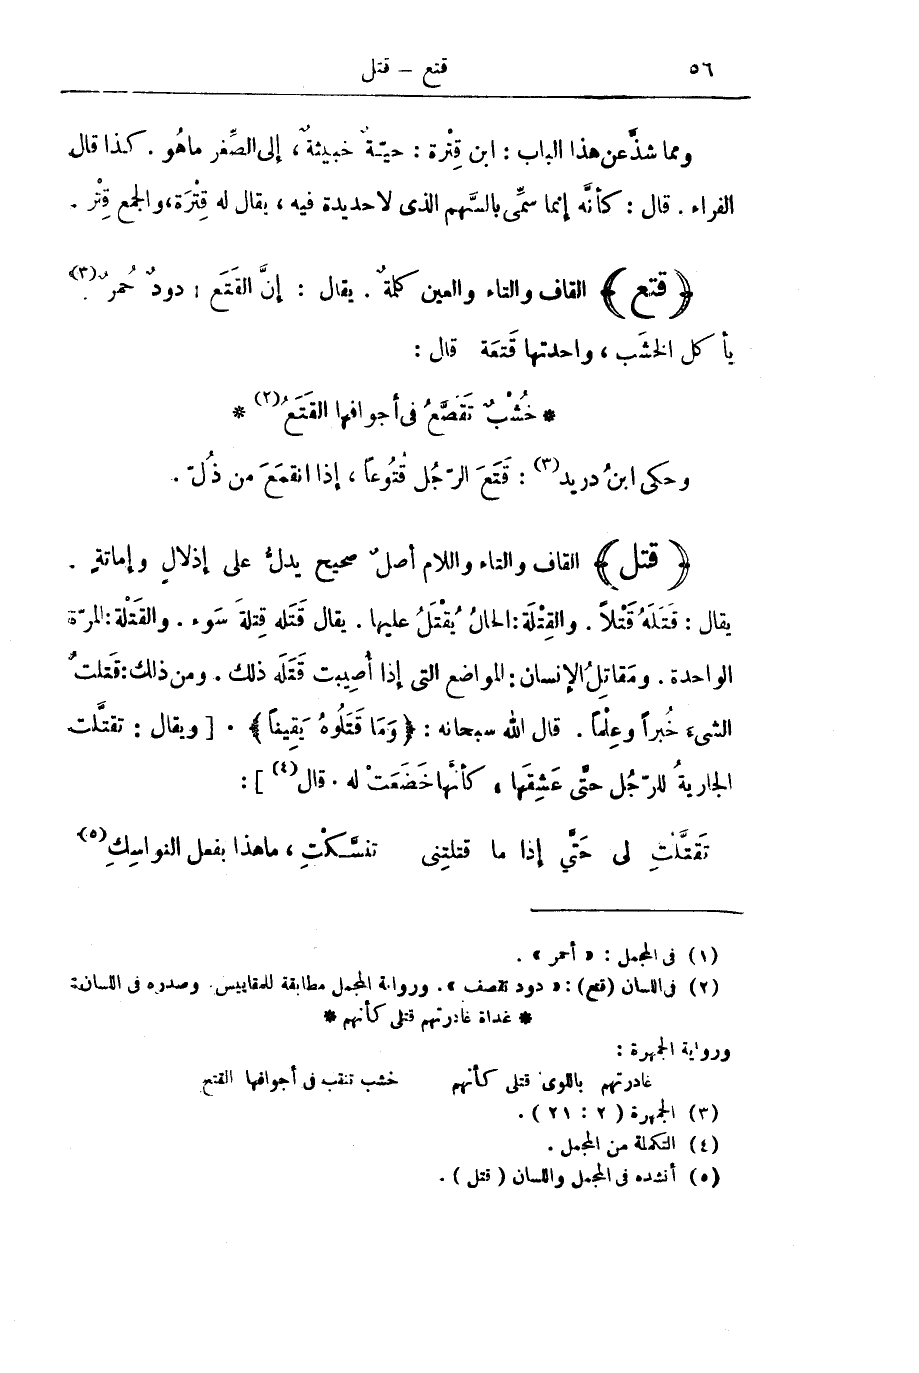 ٥٦ قتع – قتل
ومما شذَّ عن هذا الباب : ابن قِتْرة : حيّةٌ خبيثةٌ ، إلى الصِّغر ماهُو . كذا قال
الفراء . قال : كأنَّه إنما سمِّى بالسَّهم الذى لا حديدة فيه ، يقال له قِتْرَة ، والجمع قِتْر .
﴿ قتع ﴾ القاف والتاء والعين كلمةٌ . يقال : إنَّ القَتَع : دودٌ حُمرٌ(٣)
يأكل الخشَب ، واحدتها قَتَعَة قال :
* خُشْبٌ تَقَصَّعُ فى أجوافها القَتَعُ(٢) *
وحكى ابنُ دريد(٣) : قَتَعَ الرّجُل قُتُوعاً ، إذا انقمَعَ من ذُلّ .
﴿ قتل ﴾ القاف والتاء واللام أصلٌ صحيح يدلُّ على إذلالٍ وإماتةٍ .
يقال : قَتَلَهُ قَتْلاً . والقِتْلَة : الحالُ يُقْتَلُ عليها . يقال قَتَله قِتلةَ سَوء . والقَتْلة : المرّة
الواحدة . ومَقاتِلُ الإنسان : المواضع التى إذا أُصِيبت قَتَلَه ذلك . ومن ذلك : قَتلتُ
الشىءَ خُبراً وعِلْماً . قال الله سبحانه : ﴿ وَمَا قَتَلُوهُ يَقِيناً ﴾ . [ ويقال : تقتَّلت
الجاريةُ للرّجُل حتَّى عَشِقَها ، كأنَّها خَضَعَتْ له . قال(٤) ] :
تَقتَّلْتِ لى حَتَّى إذا ما قتلتِنى تنسَّكْتِ ، ماهذا بفعل النواسِكِ(٥)
(١) فى المجمل : « أحمر » .
(٢) فى اللسان (قتع) : « دود تقصف » . ورواية المجمل مطابقة للمقاييس . وصدره فى اللسان :
* غداة غادرتهم قتلى كأنهم *
ورواية الجمهرة :
غادرتهم باللوى قتلى كأنهم خشب تنقب فى أجوافها القتع
(٣) الجمهرة ( ٢ : ٢١ ) .
(٤) التكملة من المجمل .
(٥) أنشده فى المجمل واللسان ( قتل ) .